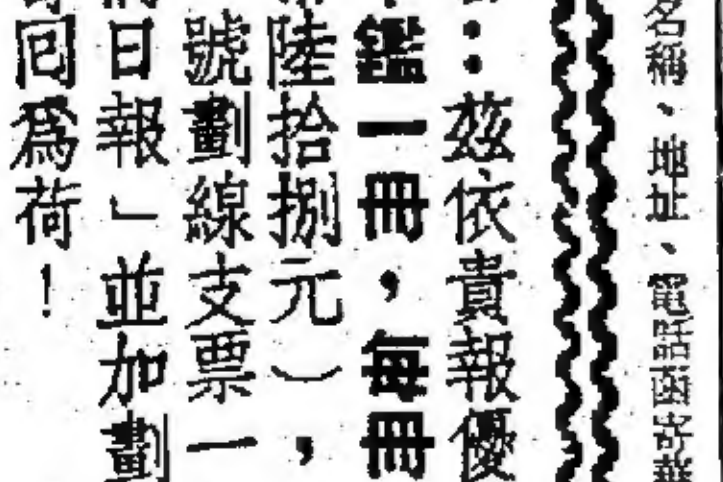 名稱、地址、電話函寄華
：茲依貴報優
鑑一冊，每冊
陸拾捌元），
號劃線支票一
日報」並加劃
回為荷！